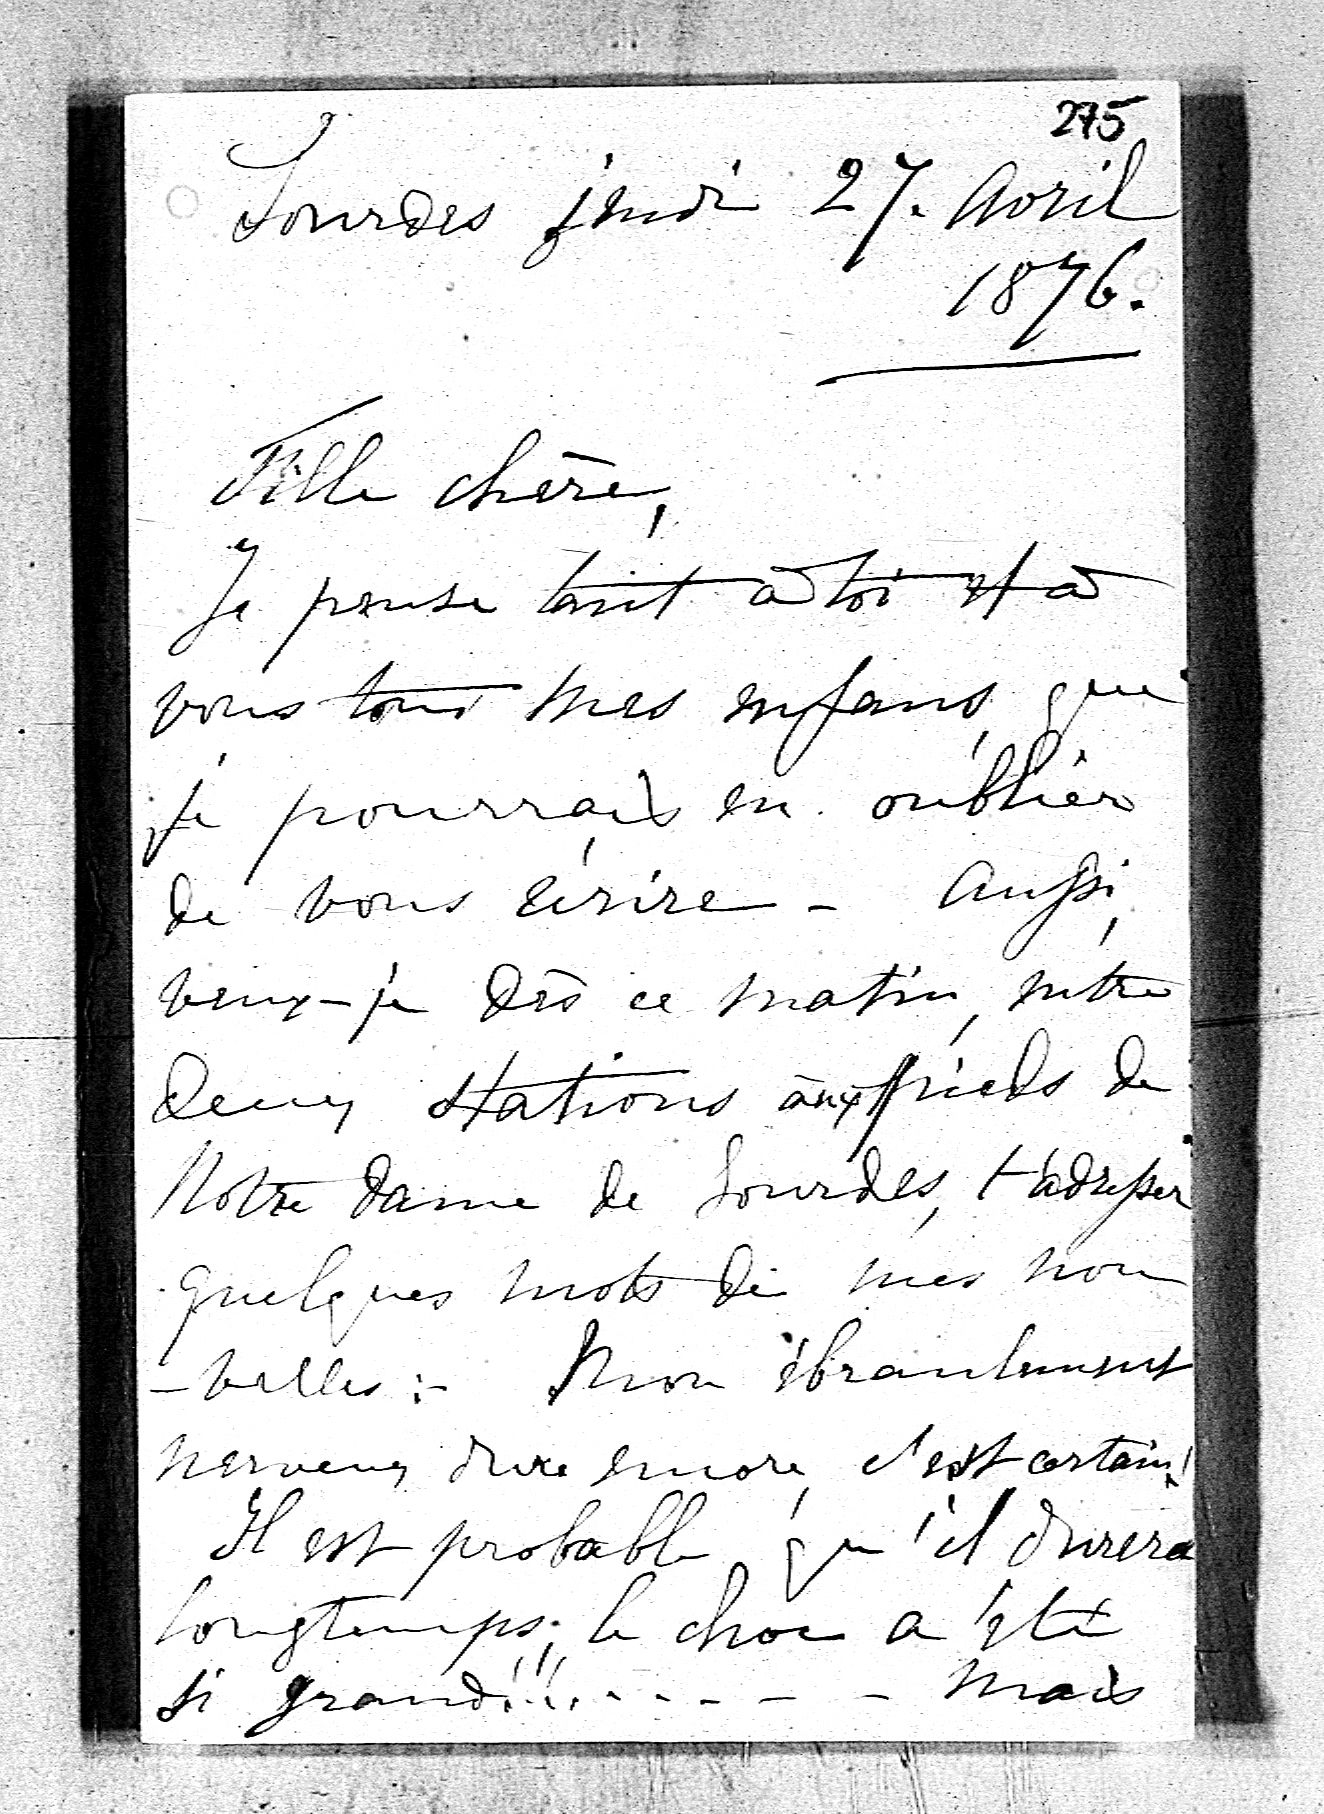 275
Lourdes jeudi 27. Avril
1876.
Fille chère,
Je pense tant à toi et à
vous tous mes enfans, que
je pourrais en oublier
de vous écrire - Aussi,
veux-je dès ce matin, entre
deux stations aux pieds de
Notre Dame de Lourdes, t'adresser
quelques mots de mes nou
-velles :- Mon ébranlement
nerveux dure encore, c'est certain!
Il est probable qu'il durera
longtemps; le choc a été
si grand!!!..----- Mais